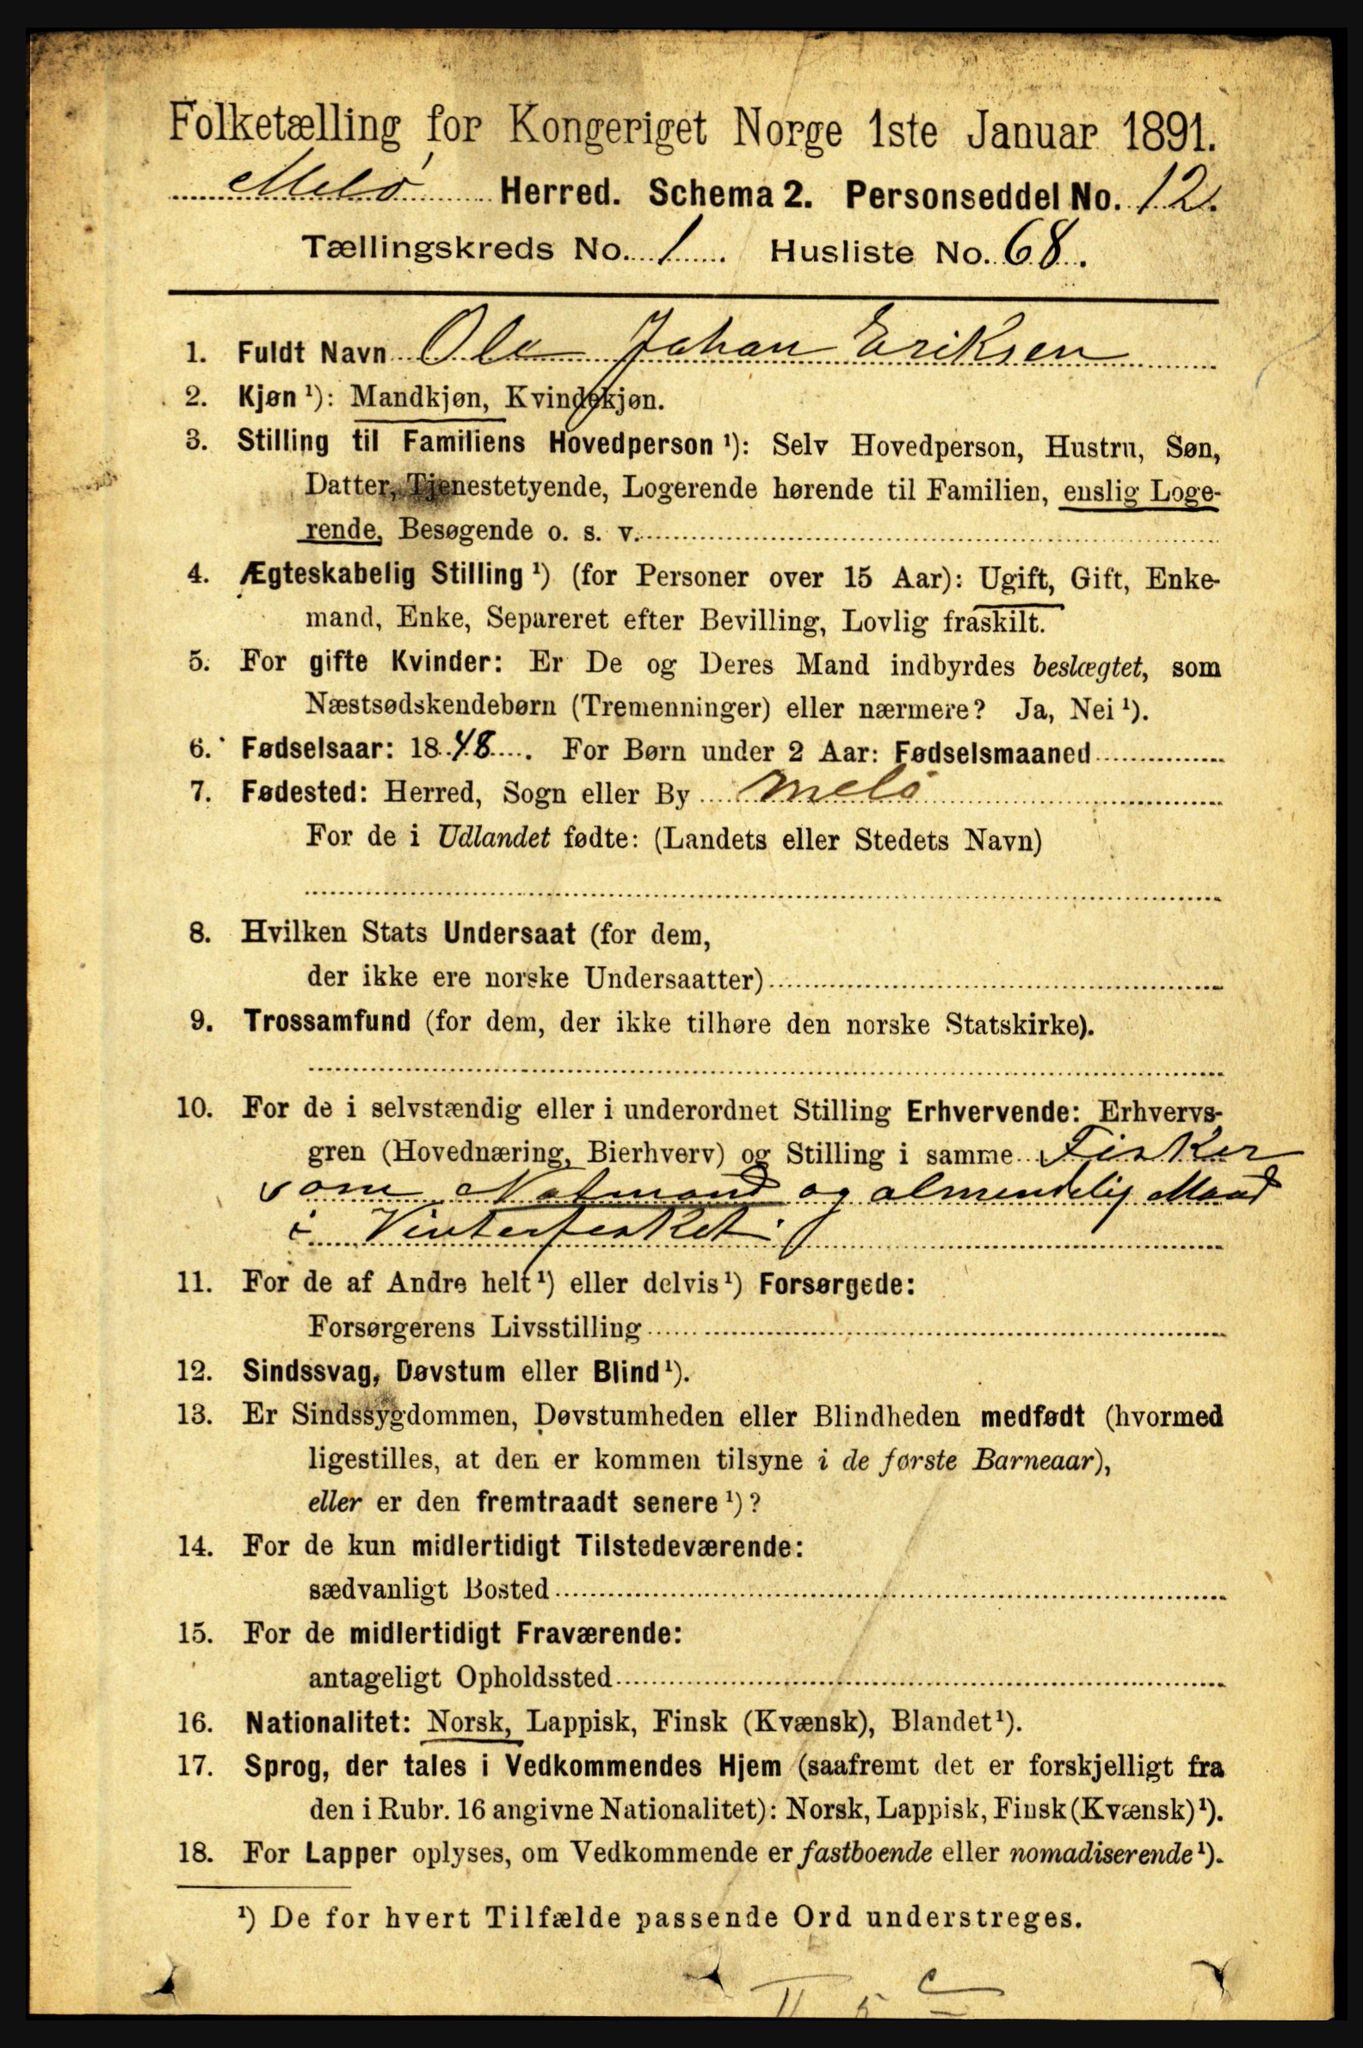 Folketælling for Kongeriget Norge 1ste Januar 1891.
Melø Herred. Schema 2. Personseddel No. 12.
Tællingskreds No. 1. Husliste No. 68.
1. Fuldt Navn Ole Johan Eriksen
2. Kjøn ¹): Mandkjøn, Kvindekjøn.
3. Stilling til Familiens Hovedperson ¹): Selv Hovedperson, Hustru, Søn,
Datter, Tjenestetyende, Logerende hørende til Familien, enslig Loge-
rende, Besøgende o. s. v.
4. Ægteskabelig Stilling ¹) (for Personer over 15 Aar): Ugift, Gift, Enke-
mand, Enke, Separeret efter Bevilling, Lovlig fraskilt.
5. For gifte Kvinder: Er De og Deres Mand indbyrdes beslægtet, som
Næstsødskendebørn (Tremenninger) eller nærmere? Ja, Nei ¹).
6. Fødselsaar: 1848. For Børn under 2 Aar: Fødselsmaaned
7. Fødested: Herred, Sogn eller By Melö
For de i Udlandet fødte: (Landets eller Stedets Navn)
8. Hvilken Stats Undersaat (for dem,
der ikke ere norske Undersaatter)
9. Trossamfund (for dem, der ikke tilhøre den norske Statskirke).
10. For de i selvstændig eller i underordnet Stilling Erhvervende: Erhvervs-
gren (Hovednæring, Bierhverv) og Stilling i samme Fisker
som Notmand og almendelig Mand
i Vinterfisket.
11. For de af Andre helt ¹) eller delvis ¹) Forsørgede:
Forsørgerens Livsstilling
12. Sindssvag, Døvstum eller Blind ¹).
13. Er Sindssygdommen, Døvstumheden eller Blindheden medfødt (hvormed
ligestilles, at den er kommen tilsyne i de første Barneaar),
eller er den fremtraadt senere ¹)?
14. For de kun midlertidigt Tilstedeværende:
sædvanligt Bosted
15. For de midlertidigt Fraværende:
antageligt Opholdssted
16. Nationalitet: Norsk, Lappisk, Finsk (Kvænsk), Blandet ¹).
17. Sprog, der tales i Vedkommendes Hjem (saafremt det er forskjelligt fra
den i Rubr. 16 angivne Nationalitet): Norsk, Lappisk, Finsk (Kvænsk) ¹).
18. For Lapper oplyses, om Vedkommende er fastboende eller nomadiserende ¹).
¹) De for hvert Tilfælde passende Ord understreges.
II 5 c